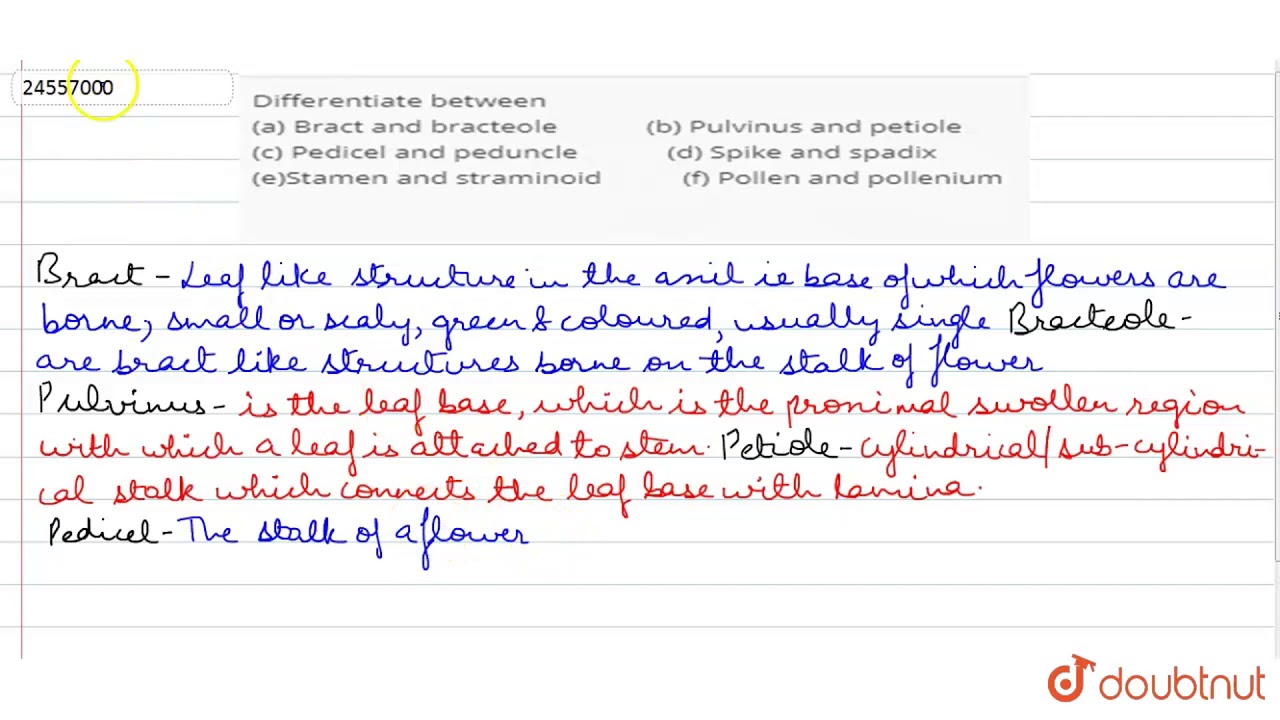 24557000
Differentiate between
(a) Bract and bracteole (b) Pulvinus and petiole
(c) Pedicel and peduncle (d) Spike and spadix
(e)Stamen and straminoid (f) Pollen and pollenium
Bract - Leaf like structure in the axil ie base of which flowers are
borne, small or scaly, green & coloured, usually single Bracteole-
are bract like structures borne on the stalk of flower
Pulvinus - is the leaf base, which is the proximal swollen region
with which a leaf is attached to stem. Petiole - cylindrical/sub-cylindri-
cal stalk which connects the leaf base with lamina.
Pedicel - The stalk of a flower
doubtnut